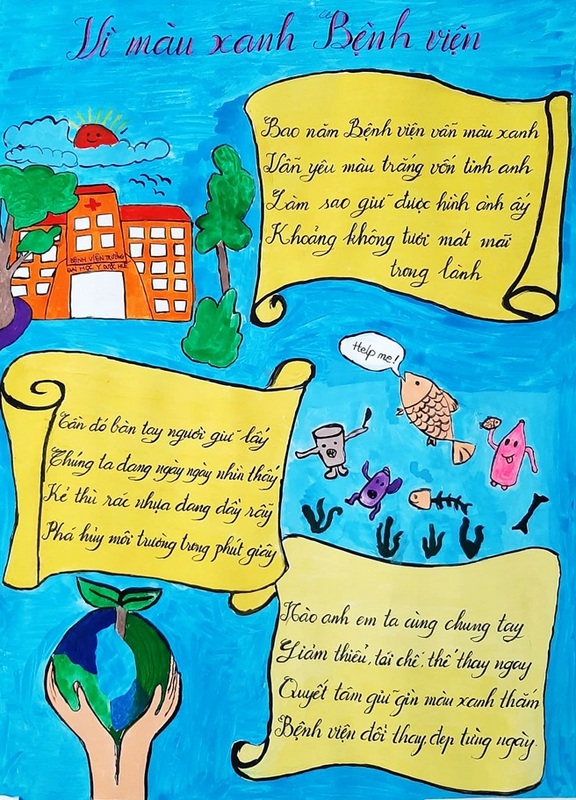 Vì màu xanh Bệnh viện
Bao năm Bệnh viện vẫn màu xanh
Vẫn yêu màu trắng vốn tinh anh
Làm sao giữ được hình ảnh ấy
Khoảng không tươi mát mãi
trong lành
BỆNH VIỆN TRƯỜNG
ĐẠI HỌC Y DƯỢC HUẾ
Help me!
Cần đó bàn tay người giữ lấy
Chúng ta đang ngày ngày nhìn thấy
Kẻ thù rác nhựa đang đầy rẫy
Phá hủy môi trường trong phút giây
Nào anh em ta cùng chung tay
Giảm thiểu, tái chế, thế thay ngay
Quyết tâm giữ gìn màu xanh thắm
Bệnh viện đổi thay, đẹp từng ngày.